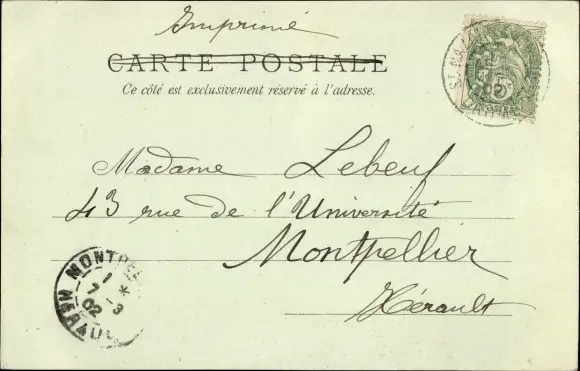 Imprimé
CARTE POSTALE
Ce côté est exclusivement réservé à l'adresse.
Madame Lebeuf
43 rue de l'Université
Montpellier
Hérault
MONTPEL
1
7 - 3
02
HERAULT
ST NAZ
02